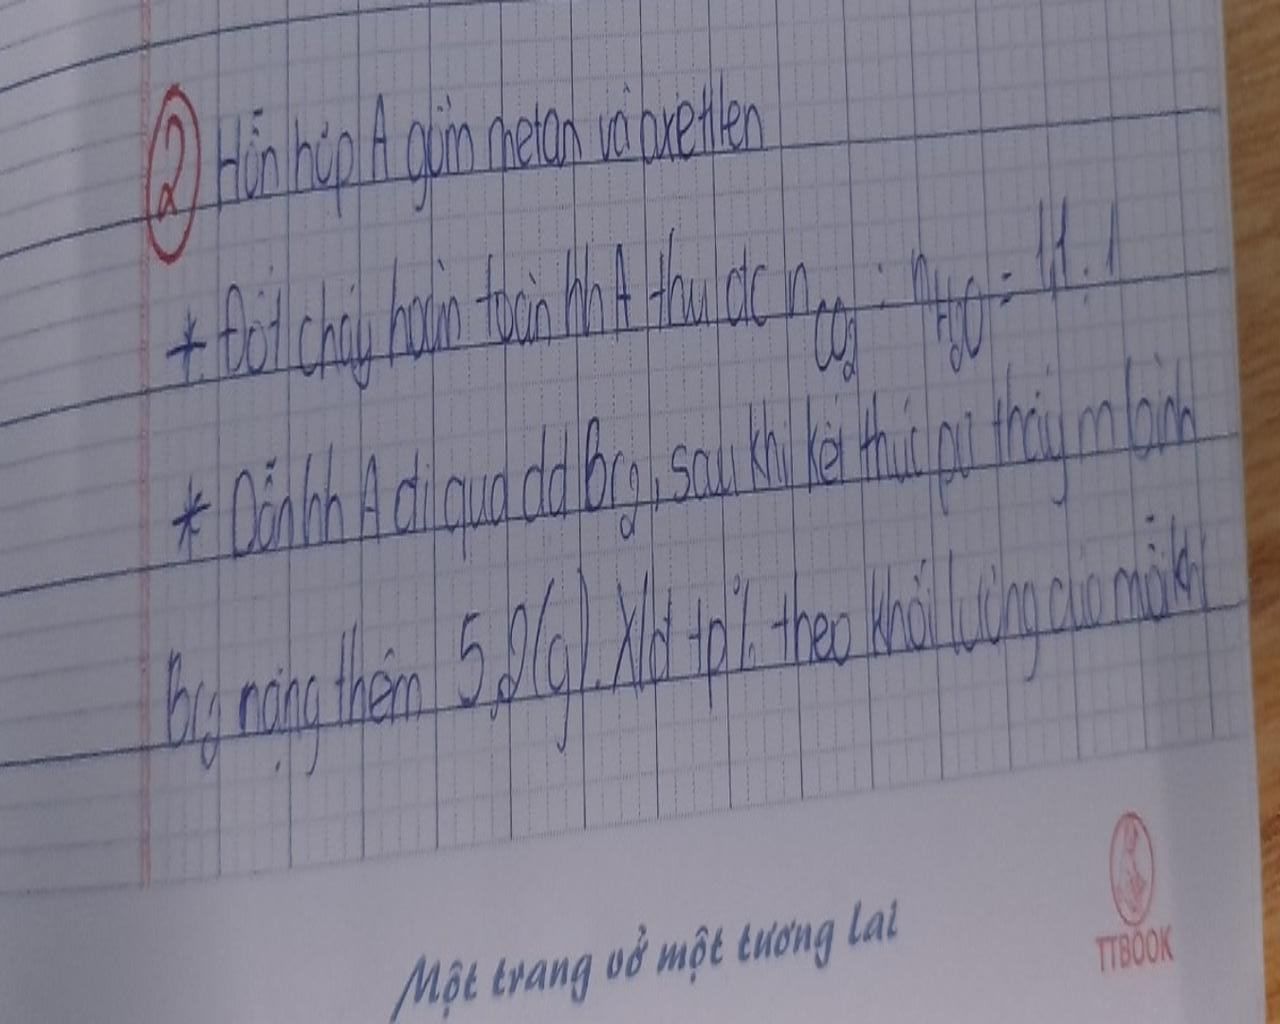 ② Hỗn hợp A gồm metan và axetilen
* Đốt cháy hoàn toàn hh A thu đc nCO2 : nH2O = 1,1 : 1
* Dẫn hh A đi qua dd Br2, sau khi kết thúc pứ thấy m bình
Br2 nặng thêm 5,2(g). Xđ tp% theo khối lượng của mỗi khí
Một trang vở một tương lai
TTBOOK